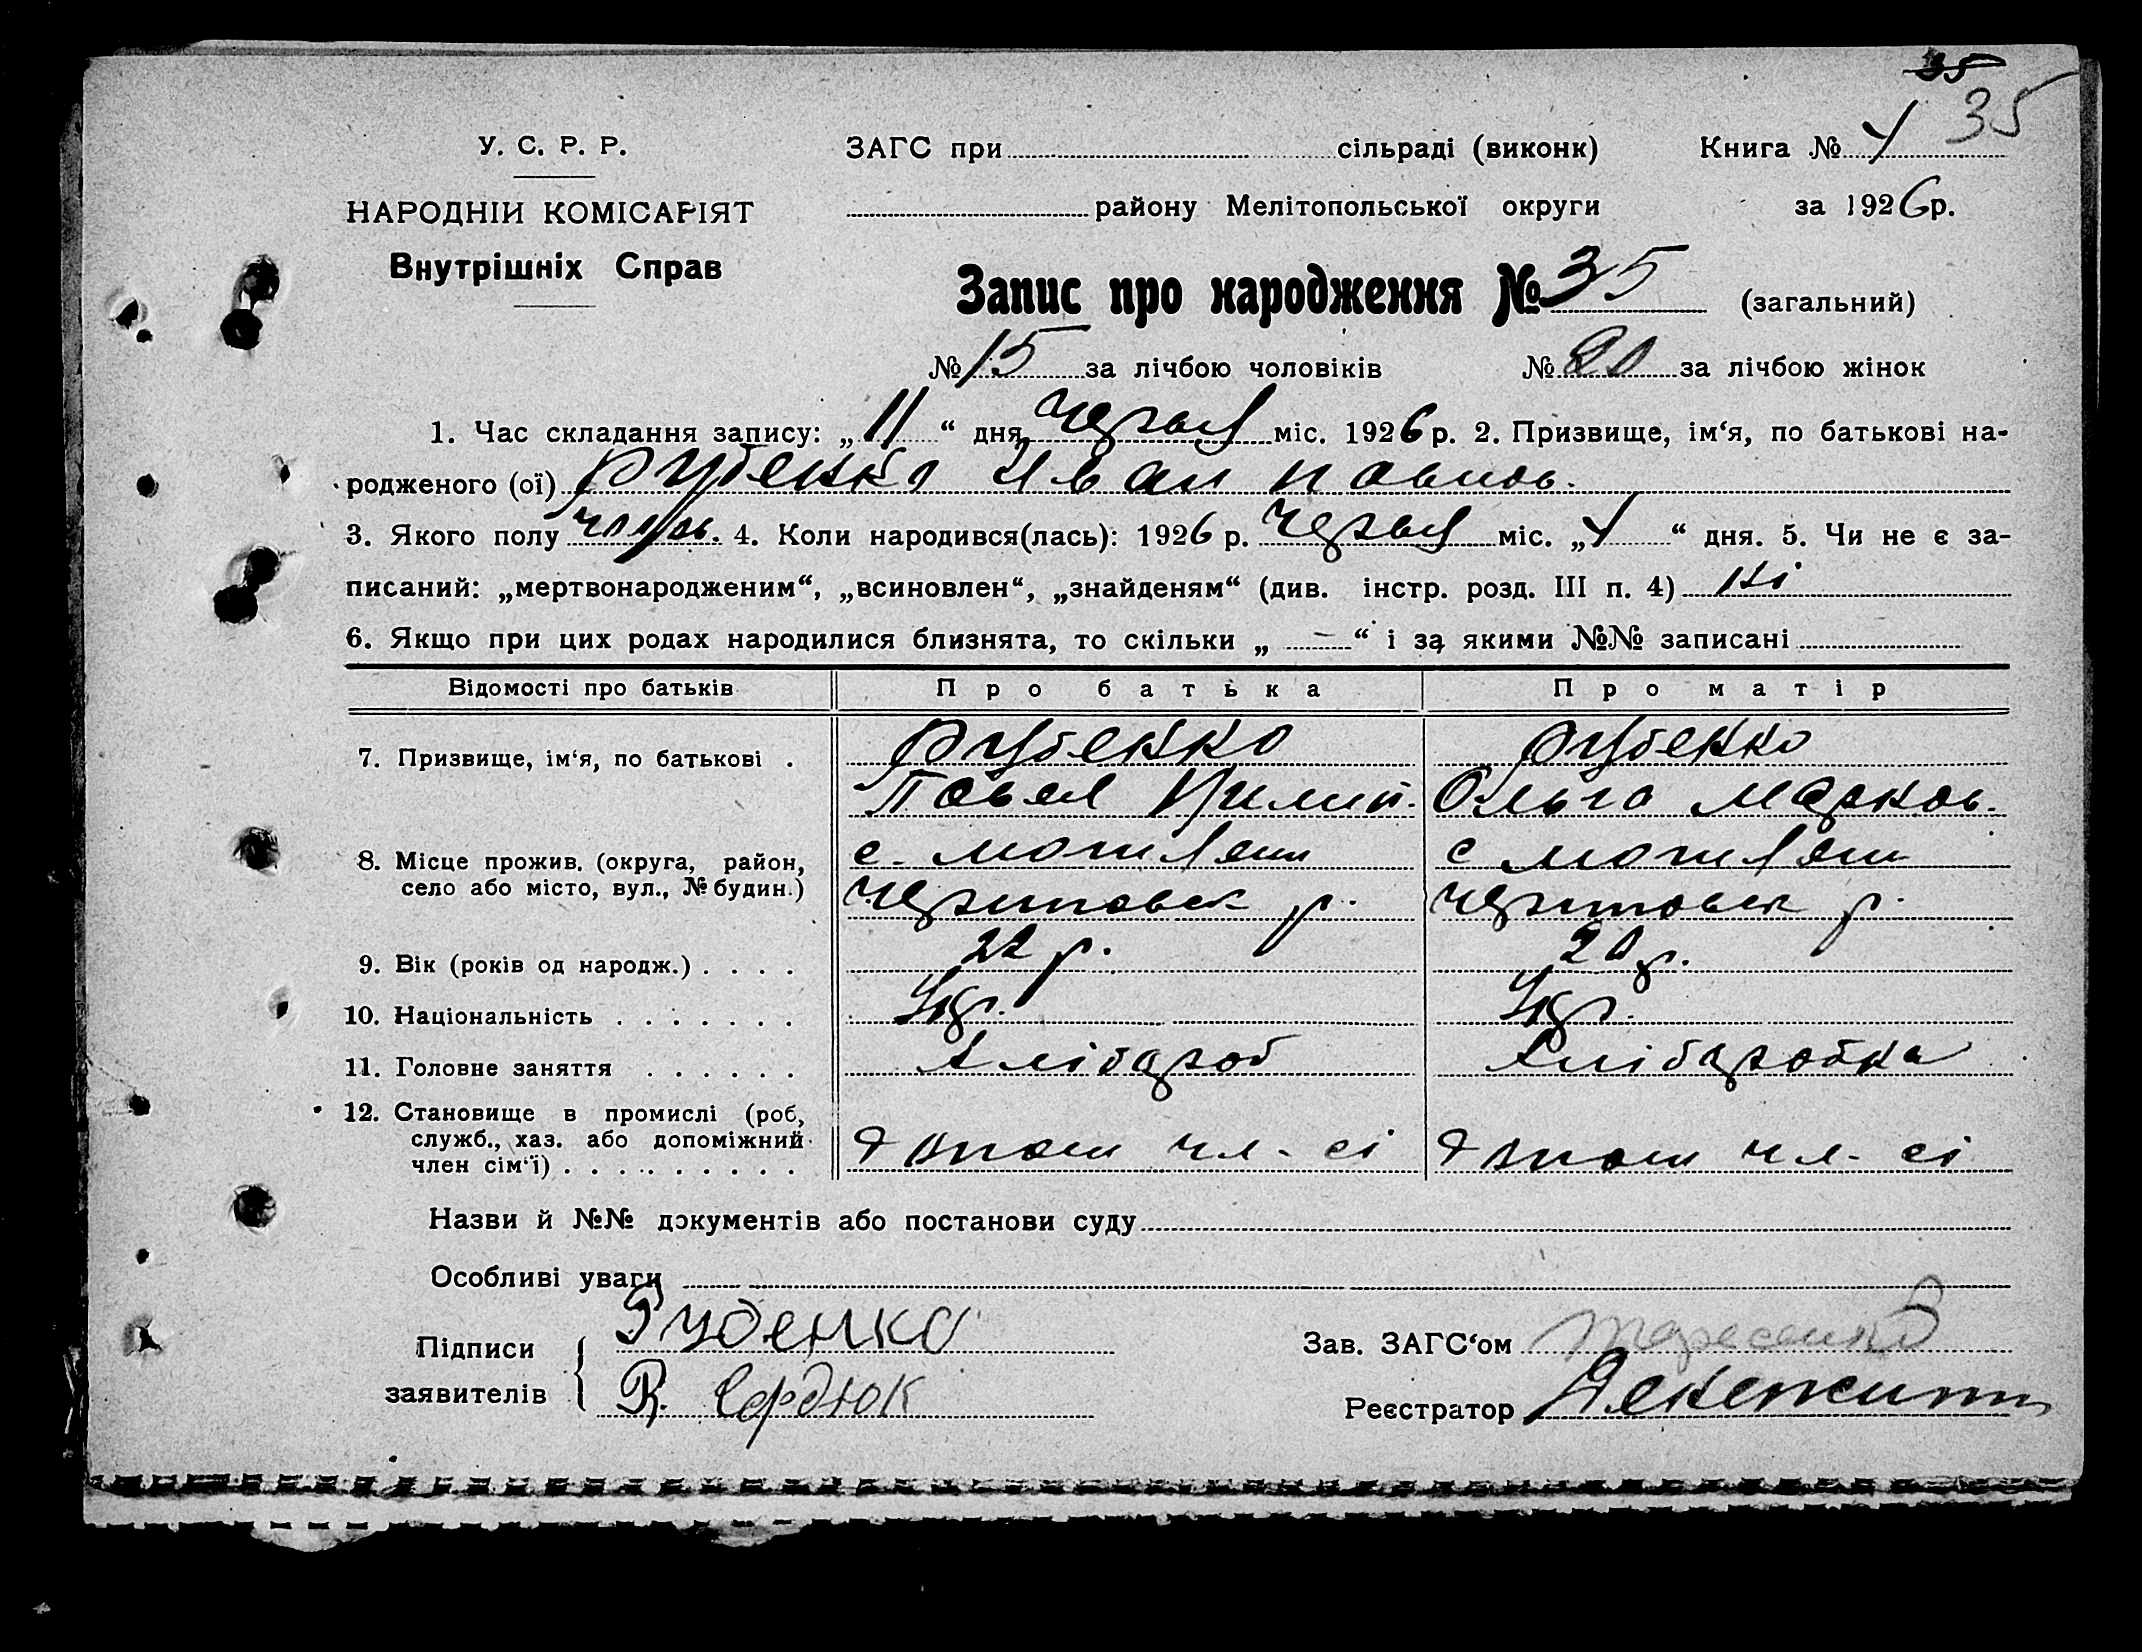 35
35
У. С. Р. Р.
ЗАГС при сільраді (виконк) Книга №
НАРОДНІЙ КОМІСАРІЯТ
району Мелітопольської округи за 1926р.
Внутрішніх Справ
Запис про народження № 35 (загальний)
№ 15 за лічбою чоловіків № 20 за лічбою жінок
1. Час складання запису: „11“ дня міс. 1926 р. 2. Призвище, ім‘я, по батькові на-
родженого (ої) Руденко Иван Павлов.
3. Якого полу 4. Коли народився(лась): 1926 р. міс. „ “ дня. 5. Чи не є за-
писаний: „мертвонародженим“, „всиновлен“, „знайденям“ (див. інстр. розд. III п. 4) Ні
6. Якщо при цих родах народилися близнята, то скільки „ – “ і за якими №№ записані
Відомості про батьків Про батька Про матір
7. Призвище, ім‘я, по батькові . Руденко Руденко
Павел Ольга Марков.
8. Місце прожив. (округа, район, с. с
село або місто, вул., № будин.) р. р.
9. Вік (років од народж.) . . . . 22 р. 20 р.
10. Національність . . . . . . . Укр. Укр.
11. Головне заняття . . . . . . Хлібороб Хліборобка
12. Становище в промислі (роб,
служб., хаз. або допоміжний чл. сі чл. сі
член сім‘ї) . . . . . . . . . .
Назви й №№ документів або постанови суду
Особливі уваги
Підписи Руденко Зав. ЗАГС‘ом
заявителів Р. Сердюк Реєстратор